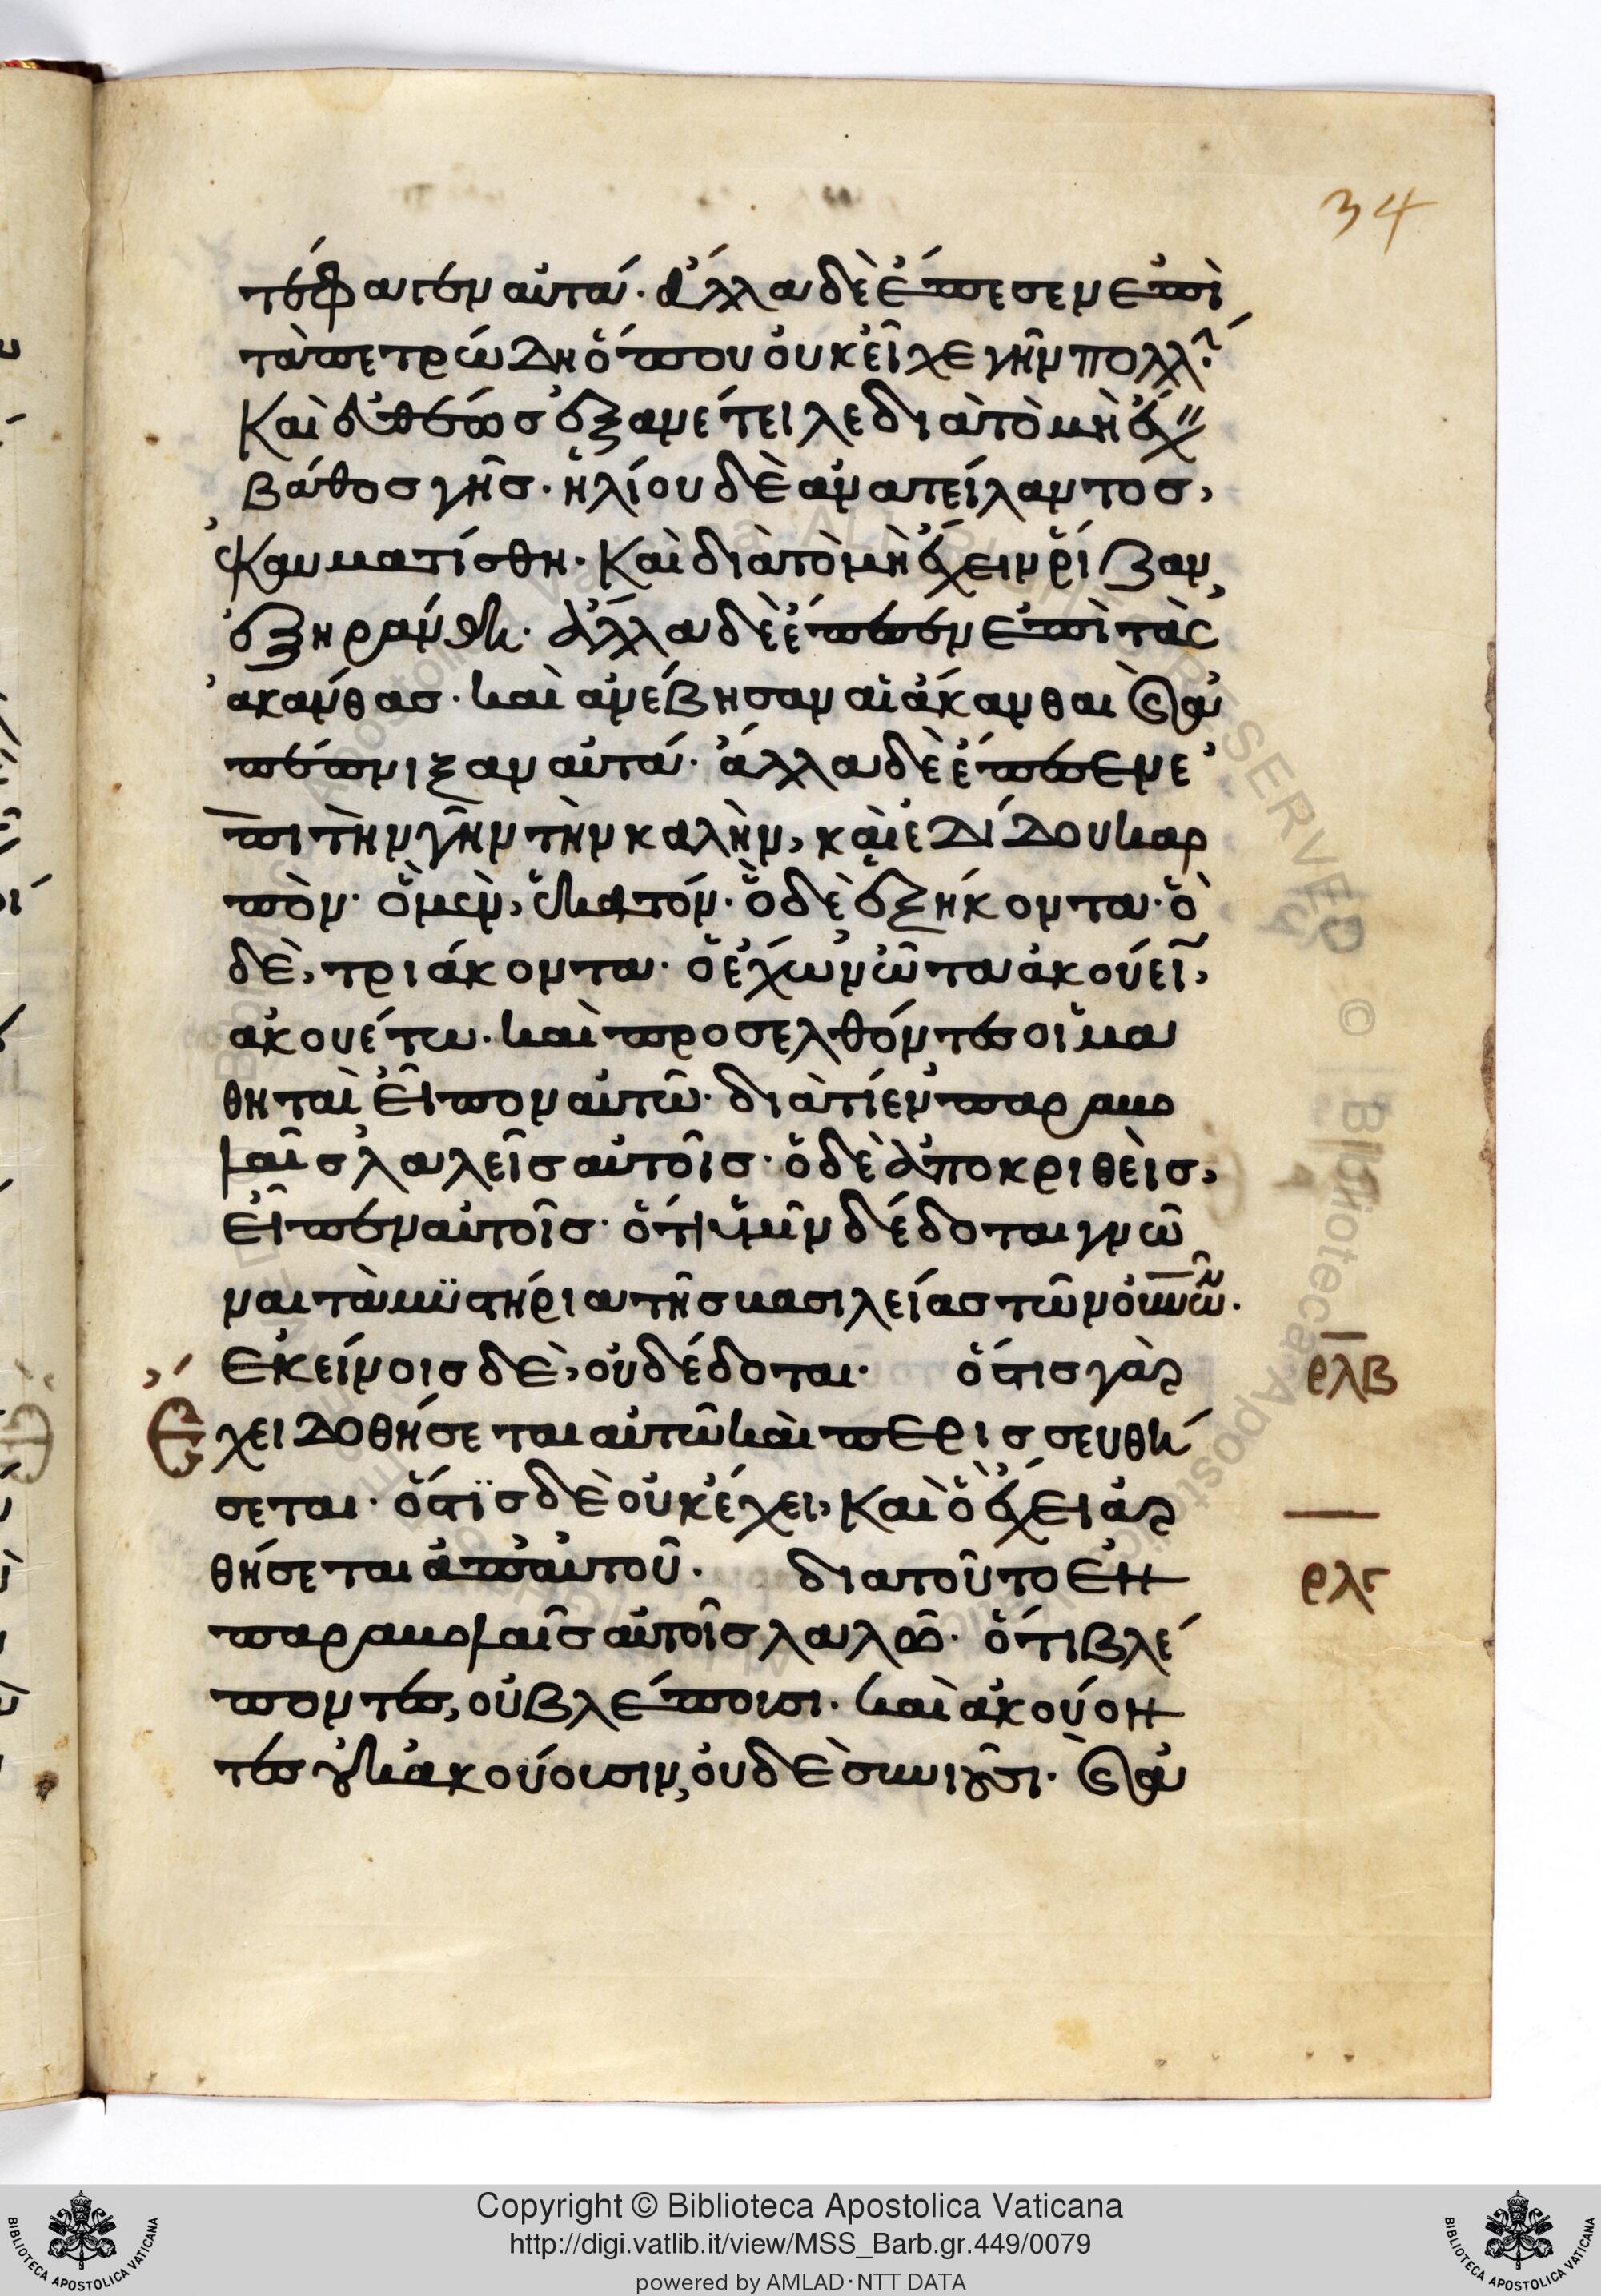 34
τέφαγεν αὐτά· ἄλλα δὲ ἔπεσεν ἐπὶ
τὰ πετρώδη ὅπου οὐκ εἶχε γῆν πολλ(ήν)
καὶ εὐθέως ἐξανέτειλε διὰ τὸ μὴ ἔχ(ειν)
βάθος γῆς· ἡλίου δὲ ἀνατείλαντος,
ἐκαυματίσθη· καὶ διὰ τὸ μὴ ἔχειν ῥίζαν,
ἐξηράνθη· ἄλλα δὲ ἔπεσεν ἐπὶ τὰς
ἀκάνθας· καὶ ἀνέβησαν αἱ ἄκανθαι καὶ ἀ
πέπνιξαν αὐτά· ἄλλα δὲ ἔπεσεν ἐ
πὶ τὴν γῆν τὴν καλὴν, καὶ ἐδίδου καρ
πὸν· ὃ μὲν, ἑκατόν· ὃ δὲ ἑξήκοντα· ὃ
δὲ, τριάκοντα· ὁ ἔχων ὦτα ἀκούειν,
ἀκουέτω· καὶ προσελθόντες οἱ μα
θηταὶ εἶπον αὐτῶ· διὰ τί ἐν παραβο
λαῖς λαλεῖς αὐτοῖς· ὁ δὲ ἀποκριθεὶς,
εἶπεν αὐτοῖς· ὅτι ὑμῖν δέδοται γνῶ
ναι τὰ μυστήρια τῆς βασιλείας τῶν οὐνῶν·
ἐκείνοις δὲ, οὐ δέδοται· ὅστις γὰρ
ρλβ
ἔχει δοθήσεται αὐτῶ καὶ περισσευθή
σεται· ὅστϊς δὲ οὐκ ἔχει, καὶ ὃ ἔχει ἀρ
θήσεται ἀπ' αὐτοῦ· διὰ τοῦτο ἐν
ρλγ
παραβολαῖς αὐτοῖς λαλῶ· ὅτι βλέ
ποντες, οὐ βλέπουσι· καὶ ἀκούον
τες οὐκ ἀκούουσιν, οὐδὲ συνιοῦσι· καὶ ἀ
Copyright © Biblioteca Apostolica Vaticana
http://digi.vatlib.it/view/MSS_Barb.gr.449/0079
powered by AMLAD·NTT DATA
BIBLIOTECA APOSTOLICA VATICANA
BIBLIOTECA APOSTOLICA VATICANA